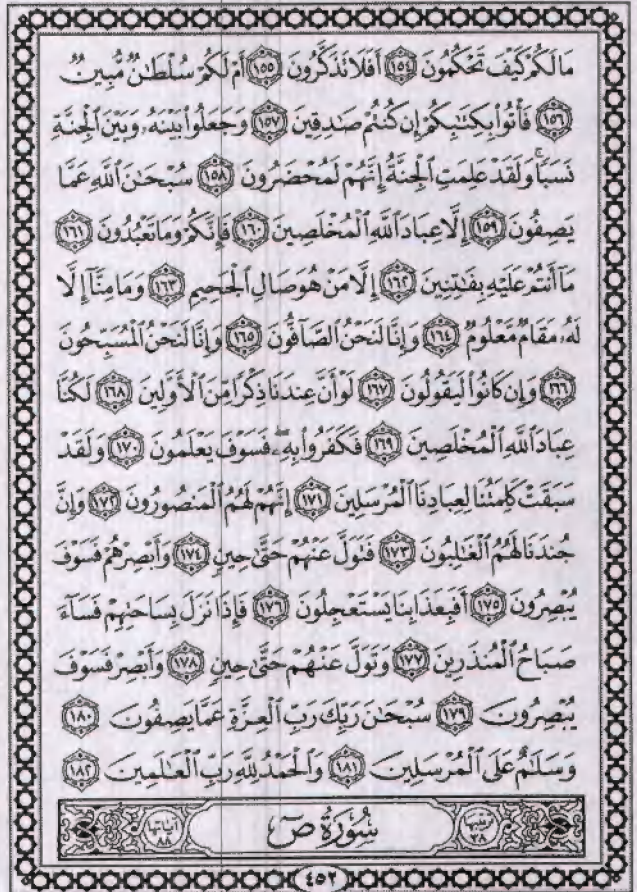 مَا لَكُمْ كَيْفَ تَحْكُمُونَ ١٥٤ أَفَلَا تَذَكَّرُونَ ١٥٥ أَمْ لَكُمْ سُلْطَٰنٌ مُّبِينٌ
١٥٦ فَأْتُوا۟ بِكِتَٰبِكُمْ إِن كُنتُمْ صَٰدِقِينَ ١٥٧ وَجَعَلُوا۟ بَيْنَهُۥ وَبَيْنَ ٱلْجِنَّةِ
نَسَبًۭا ۚ وَلَقَدْ عَلِمَتِ ٱلْجِنَّةُ إِنَّهُمْ لَمُحْضَرُونَ ١٥٨ سُبْحَٰنَ ٱللَّهِ عَمَّا
يَصِفُونَ ١٥٩ إِلَّا عِبَادَ ٱللَّهِ ٱلْمُخْلَصِينَ ١٦٠ فَإِنَّكُمْ وَمَا تَعْبُدُونَ ١٦١
مَآ أَنتُمْ عَلَيْهِ بِفَٰتِنِينَ ١٦٢ إِلَّا مَنْ هُوَ صَالِ ٱلْجَحِيمِ ١٦٣ وَمَا مِنَّآ إِلَّا
لَهُۥ مَقَامٌۭ مَّعْلُومٌۭ ١٦٤ وَإِنَّا لَنَحْنُ ٱلصَّآفُّونَ ١٦٥ وَإِنَّا لَنَحْنُ ٱلْمُسَبِّحُونَ
١٦٦ وَإِن كَانُوا۟ لَيَقُولُونَ ١٦٧ لَوْ أَنَّ عِندَنَا ذِكْرًۭا مِّنَ ٱلْأَوَّلِينَ ١٦٨ لَكُنَّا
عِبَادَ ٱللَّهِ ٱلْمُخْلَصِينَ ١٦٩ فَكَفَرُوا۟ بِهِۦ ۖ فَسَوْفَ يَعْلَمُونَ ١٧٠ وَلَقَدْ
سَبَقَتْ كَلِمَتُنَا لِعِبَادِنَا ٱلْمُرْسَلِينَ ١٧١ إِنَّهُمْ لَهُمُ ٱلْمَنصُورُونَ ١٧٢ وَإِنَّ
جُندَنَا لَهُمُ ٱلْغَٰلِبُونَ ١٧٣ فَتَوَلَّ عَنْهُمْ حَتَّىٰ حِينٍۢ ١٧٤ وَأَبْصِرْهُمْ فَسَوْفَ
يُبْصِرُونَ ١٧٥ أَفَبِعَذَابِنَا يَسْتَعْجِلُونَ ١٧٦ فَإِذَا نَزَلَ بِسَاحَتِهِمْ فَسَآءَ
صَبَاحُ ٱلْمُنذَرِينَ ١٧٧ وَتَوَلَّ عَنْهُمْ حَتَّىٰ حِينٍۢ ١٧٨ وَأَبْصِرْ فَسَوْفَ
يُبْصِرُونَ ١٧٩ سُبْحَٰنَ رَبِّكَ رَبِّ ٱلْعِزَّةِ عَمَّا يَصِفُونَ ١٨٠
وَسَلَٰمٌ عَلَى ٱلْمُرْسَلِينَ ١٨١ وَٱلْحَمْدُ لِلَّهِ رَبِّ ٱلْعَٰلَمِينَ ١٨٢
ترتيبها ٣٨ سُورَةُ صٓ آياتها ٨٨
٤٥٢